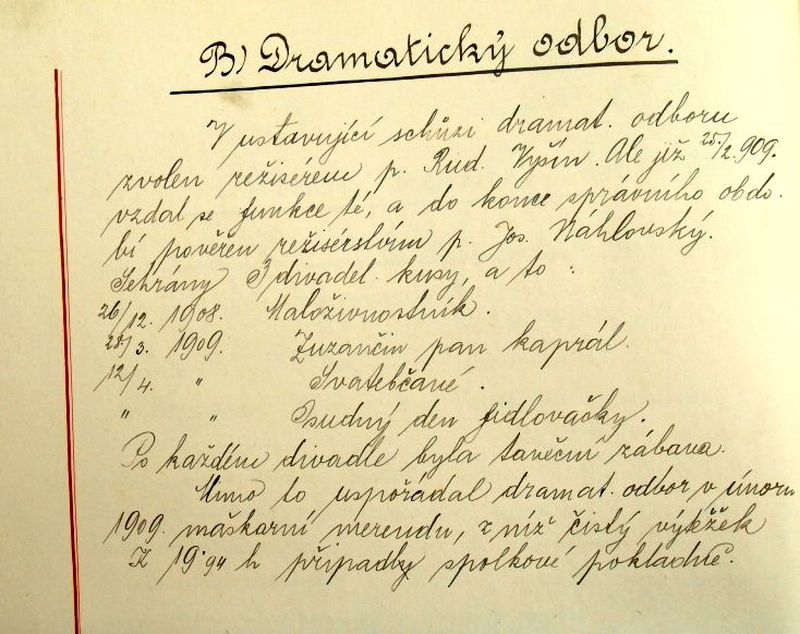 B) Dramatický odbor.
V ustavující schůzi dramat. odboru
zvolen režisérem p. Rud. Vyšín. Ale již 25./2. 909.
vzdal se funkce té, a do konce správního obdo-
bí pověřen režisérstvím p. Jos. Náhlovský.
Sehrány 3 divadel. kusy, a to:
26/12. 1908. Maloživnostník.
28/3. 1909. Zuzančin pan kaprál.
12/4. " Svatebčané.
" " Osudný den fidlovačky.
Po každém divadle byla taneční zábava.
Mimo to uspořádal dramat. odbor v únoru
1909. máškarní merendu, z níž čistý výtěžek
K 19·94 h připadly spolkové pokladně.